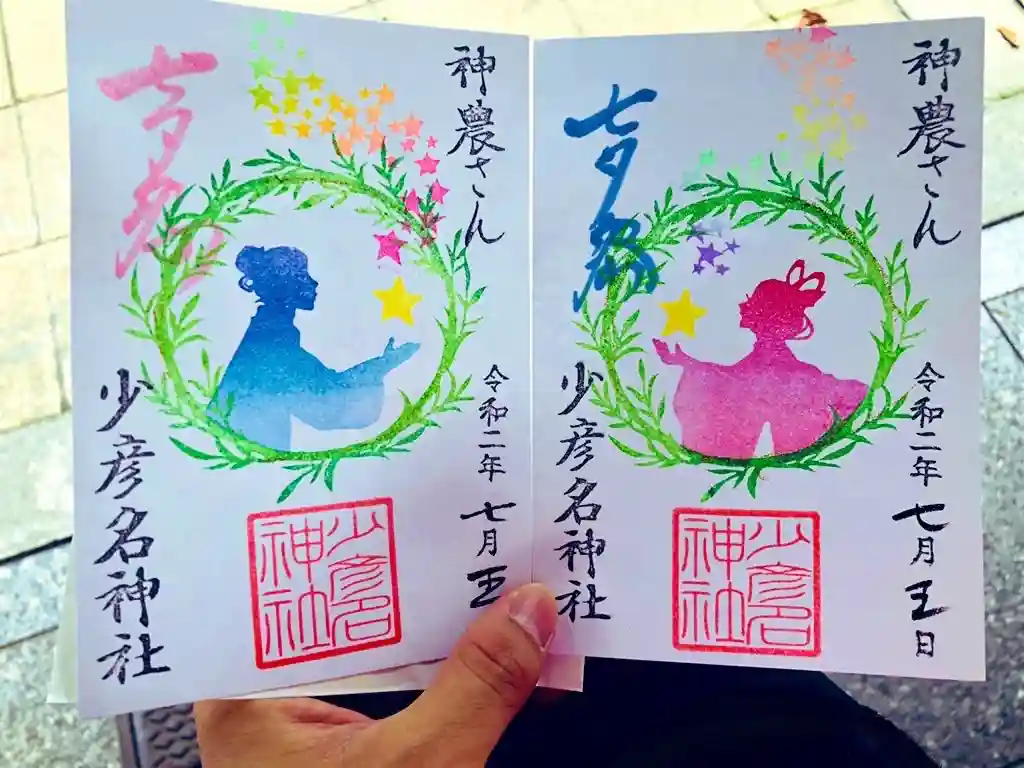 神農さん
令和二年七月五
七夕祭
少彦名神社
少彦名
神社
神農さん
令和二年七月五日
七夕祭
少彦名神社
少彦名
神社